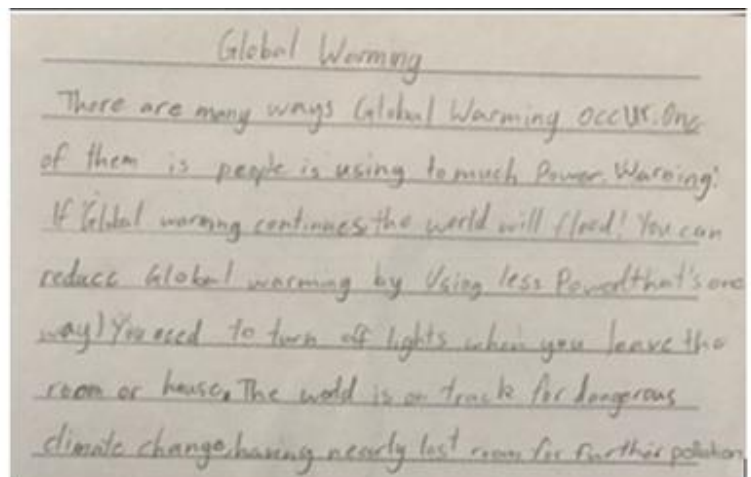 Global Warming
There are many ways Global Warming occur. One
of them is people is using to much Power. Warning!
If Global warming continues, the world will flood! You can
reduce Global warming by Using less Power(that's one
way) You need to turn off lights when you leave the
room or house. The world is on track for dangerous
climate change, having nearly lost room for further pollution